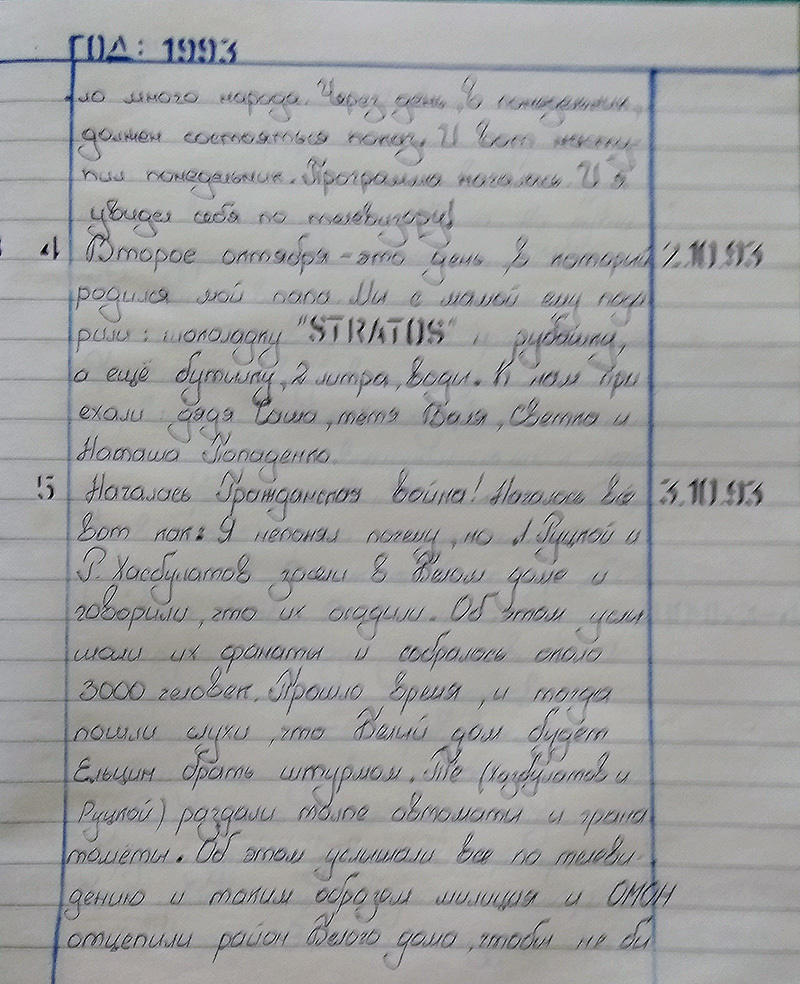 ГОД: 1993
ло много народа. Через день, в понедельник,
должен состояться показ. И вот насту
пил понедельник. Программа началась. И я
увидел себя по телевизору!
4 Второе октября - это день, в который 2.10.93
родился мой папа. Ми с мамой ему пода
рили: шоколадку "STRATOS" и рубашку,
а ещё бутилку, 2 литра, води. К нам при
ехали дядя Саша, тётя Валя, Светка и
Наташа Попаденко.
5 Началась Гражданская война! Началось всё 3.10.93
вот как: Я непонял почему, но А. Руцкой и
Р. Хасбулатов засели в Белом доме и
говорили, что их осадили. Об этом усли
шали их фанаты и собралось около
3000 человек. Прошло время, и тогда
пошли слухи, что Белий дом будет
Ельцин брать штурмом. Те (Хазбулатов и
Руцкой) раздали толпе автомати и грана
томёты. Об этом услишали все по телеви-
дению и таким образом милиция и ОМОН
отцепили район Белого дома, чтобы не би